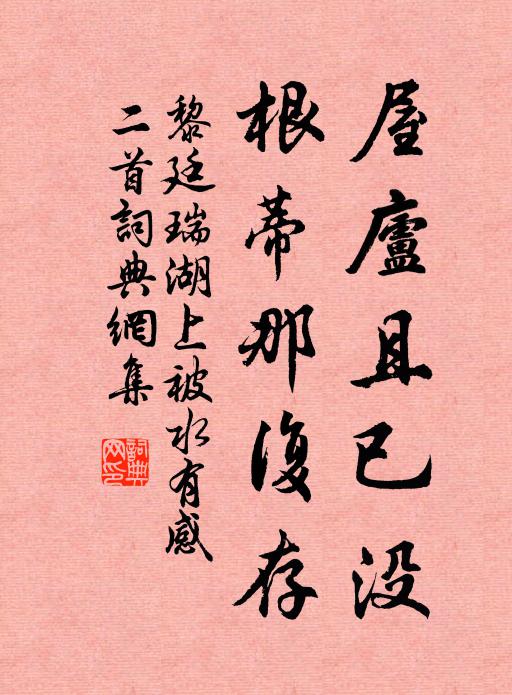 屋廬且已没
根蒂那復存
黎廷瑞湖上被水有感
二首詞典網集
詞典
网印